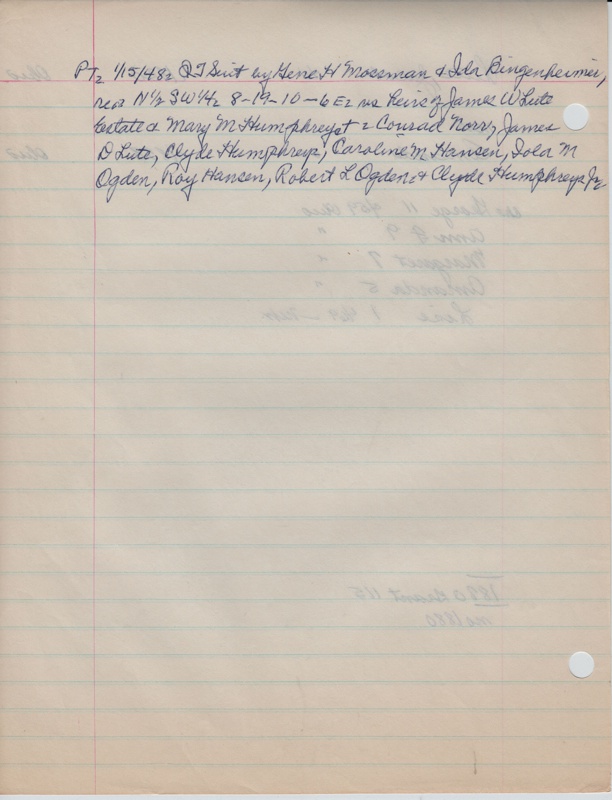 PT, 1/15/48, QT Suit by Gene H Mossman & Ida Bingenheimer,
re N½ SW¼, 8-19-10-6E, vs heirs of James W Lute
estate & Mary M Humphreys, Conrad Norr, James
D Lute, Clyde Humphreys, Caroline M Hansen, Iola M
Ogden, Roy Hansen, Robert L Ogden, & Clyde Humphreys Jr